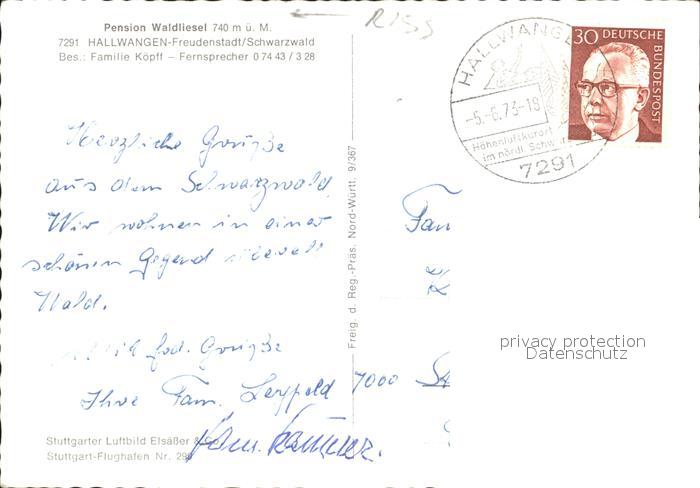 Pension Waldliesel 740 m ü. M.
7291 HALLWANGEN-Freudenstadt/Schwarzwald
Bes.: Familie Köpff – Fernsprecher 0 74 43 / 3 28
RISS
HALLWANGE
-5.-6.73-18
Höhenluftkurort
im nördl. Schw
7291
30 DEUTSCHE BUNDESPOST
Herzliche Grüße
aus dem Schwarzwald
Wir wohnen in einer
schönen Gegend
Wald.
Grüße
Ihre Fam.
Fam.
Freig. d. Reg.-Präs. Nord-Württ. 9/367
Fam
7000
privacy protection
Datenschutz
Stuttgarter Luftbild Elsäßer & Co
Stuttgart-Flughafen Nr.